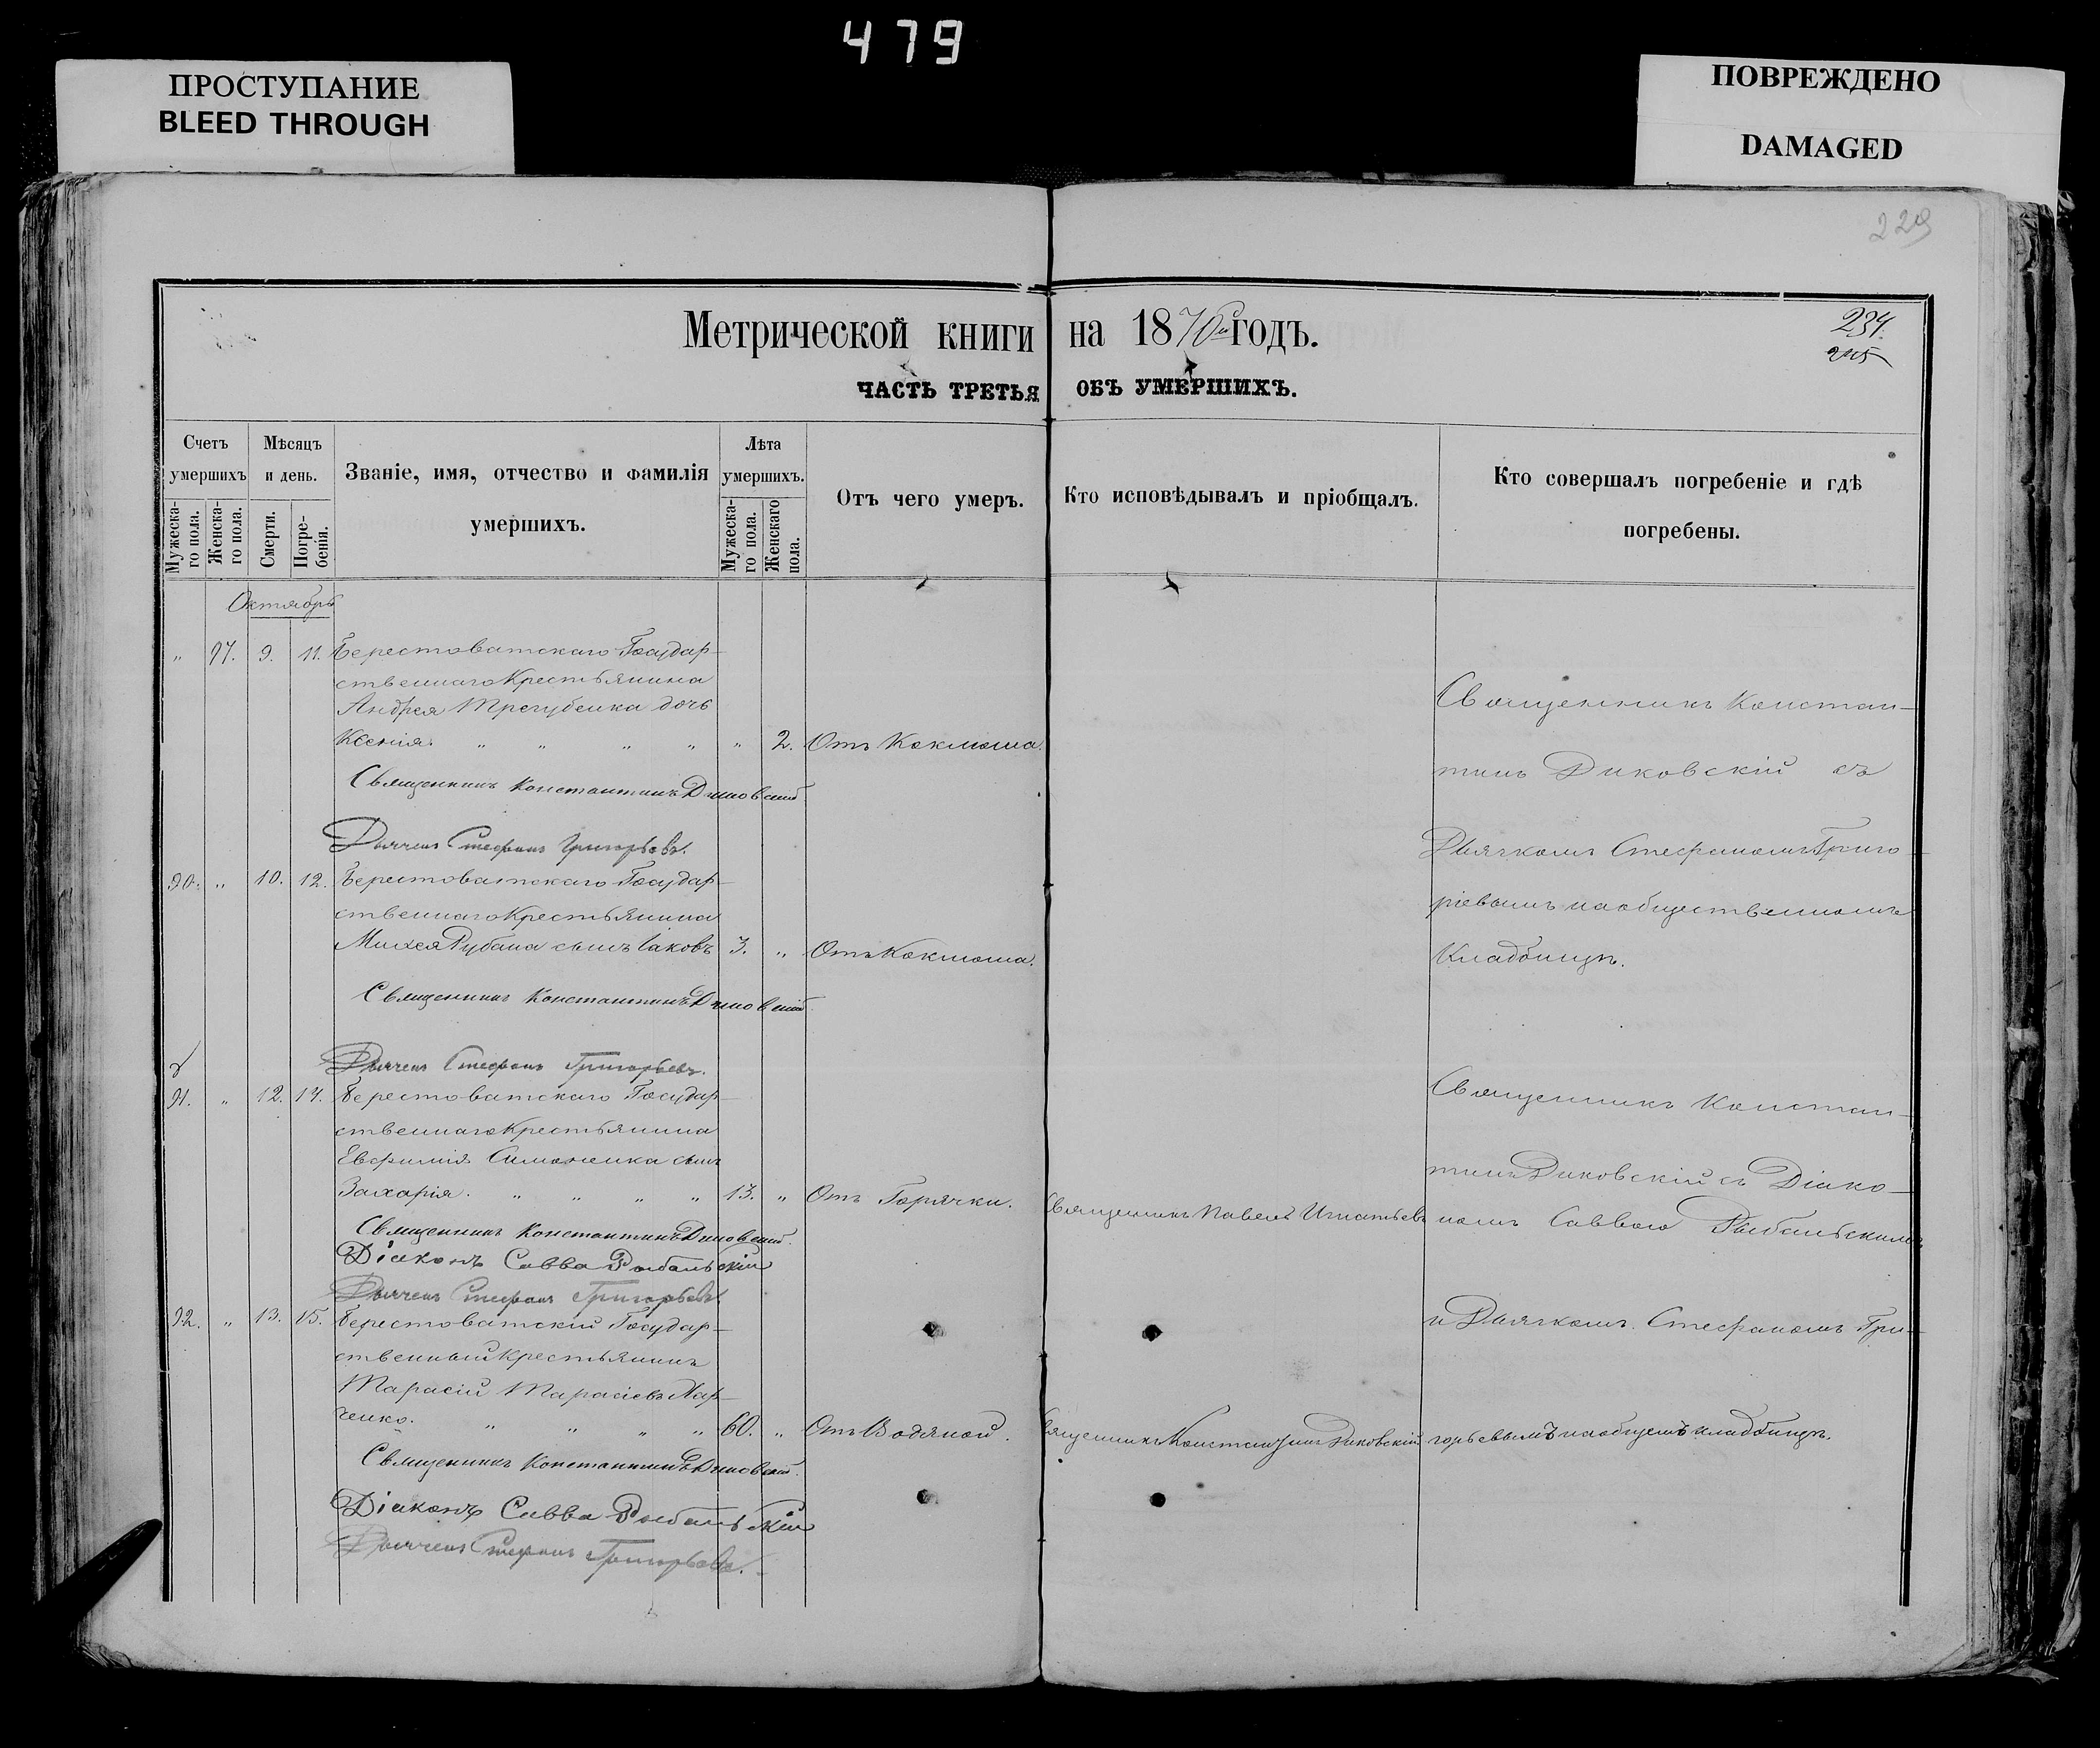 479
ПРОСТУПАНИЕ
BLEED THROUGH
ПОВРЕЖДЕНО
DAMAGED
229
Метрической книги на 1870й годъ.
234.
часть третья объ умершихъ.
Счетъ умершихъ
Мѣсяцъ и день.
Званіе, имя, отчество и фамилія умершихъ.
Лѣта умершихъ.
Отъ чего умеръ.
Кто исповѣдывалъ и пріобщалъ.
Кто совершалъ погребеніе и гдѣ погребены.
Мужеска-го пола.
Женска-го пола.
Смерти.
Погре-бенія.
Мужеска-го пола.
Женскаго пола.
Октябрь
" 97. 9. 11. Берестоватскаго Государ-
ственнаго Крестьянина
Андрея Трегубенка дочь
Ксенія. " " " " " 2. Отъ Коклюша.
Священникъ Константинъ Диковскій
Дьячекъ Стефанъ Григорьевъ.
Священникъ Констан-
тинъ Диковскій съ
Дьячкомъ Стефаномъ Григо-
ріевымъ на общественномъ
Кладбищѣ.
90. " 10. 12. Берестоватскаго Государ-
ственнаго Крестьянина
Михея Рубана сынъ Іаковъ 3. " Отъ Коклюша.
Священникъ Константинъ Диковскій
Дьячекъ Стефанъ Григорьевъ.
91. " 12. 14. Берестоватскаго Государ-
ственнаго Крестьянина
Евфимія Симоненка сынъ
Захарія. " " " " 13. " Отъ Горячки. Священникъ Павелъ Игнатьевъ
Священникъ Константинъ Диковскій.
Діаконъ Савва Рыбальскій
Дьячекъ Стефанъ Григорьевъ.
Священникъ Констан-
тинъ Диковскій съ Діако-
номъ Саввою Рыбальскимъ
и Дьячкомъ Стефаномъ Гри-
горьевымъ на общемъ кладбищѣ.
92. " 13. 15. Берестоватскій Государ-
ственный Крестьянинъ
Тарасій Тарасіевъ Хар-
ченко. " " " " 60. " Отъ Водяной. Священникъ Константинъ Диковскій
Священникъ Константинъ Диковскій.
Діаконъ Савва Рыбальскій
Дьячекъ Стефанъ Григорьевъ.